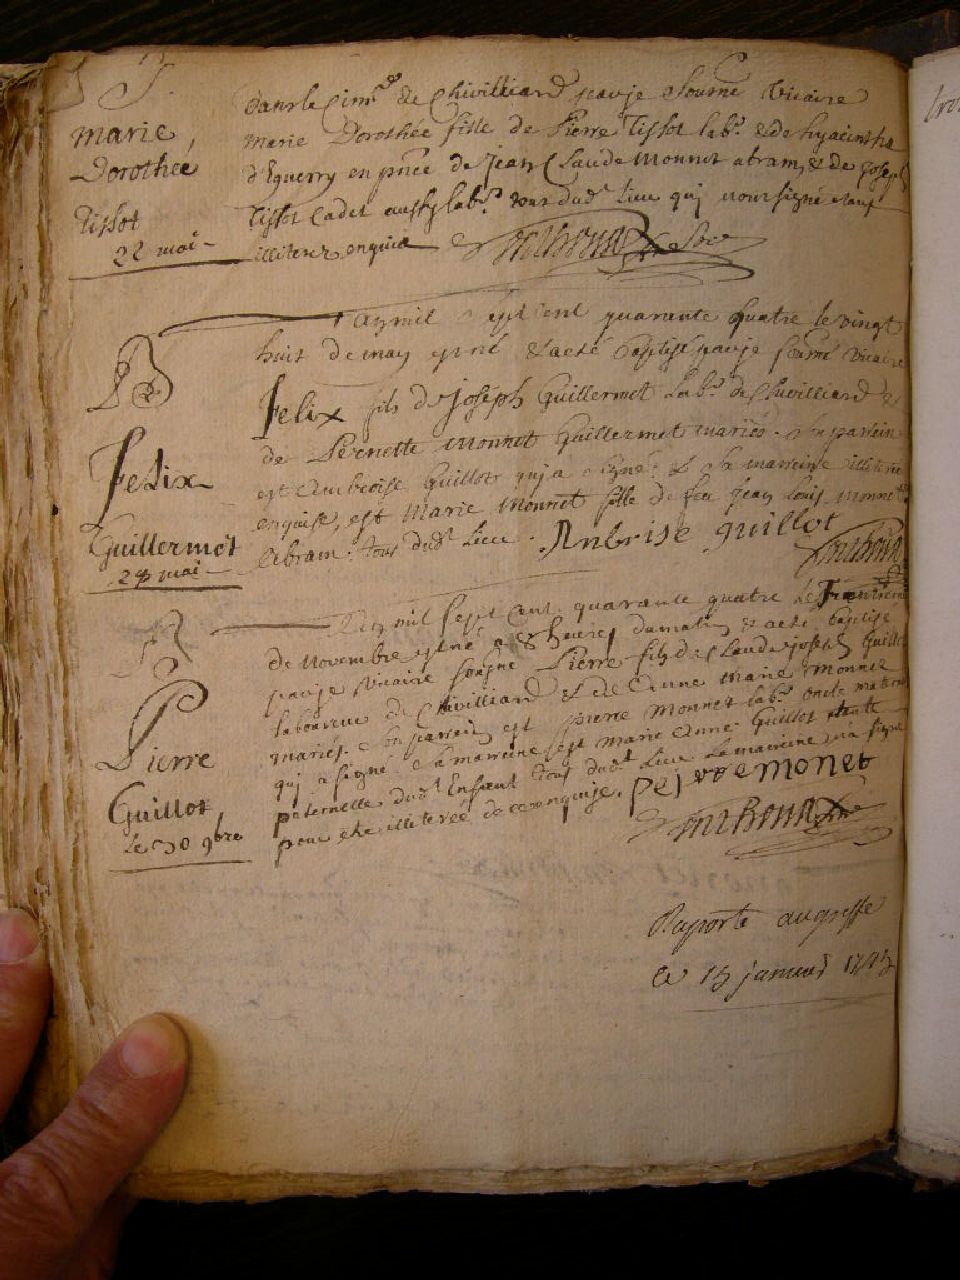 S.
marie
Dorothée
Tissot
22 mai
dans le Cim.re de Chivilliard par je Soussné Vicaire
Marie Dorothée fille de Pierre Tissot lab.r & de hyacinthe
d'Eguerry en pnce de Jean Claude Monnot abram, & de Joseph
Tissot Cadet aussy lab.r tous dud.t Lieu qui n'ont signé etant
illiterez enquis
B
Felix
Guillermet
28 mai
L'an mil Sept Cent quarante quatre le vingt
huit de may est né & a eté baptisé par je soussné Vicaire
Felix fils de Joseph Guillermet Lab.r de Chivilliard &
de Pernette Monnet Guillermet mariés. Son parrein
est Ambroise Guillot qui a signé. & Sa marreine illiterée
enquise, est Marie Monnet fille de feu Jean Louis Monnet
abram. tous dud.t Lieu. Anbrise guillot
B
Pierre
Guillot
Le 30 9bre
L'an mil Sept Cent quarante quatre Le Trentieme
de Novembre est né a 8 heures du matin & a eté baptisé
par je Vicaire soussigné Pierre fils de Claude joseph Guillot
laboureur de Chivilliard & de Anne Marie Monnet
mariés. Son parrein est pierre Monnet lab.r oncle maternel
qui a signé. Sa marreine est Marie Anne Guillot tante
paternelle dud.t Enfant tous dud.t Lieu La marreine n'a signé
pour etre illiterée de ce enquise. Pejrre Monet
Raporté au greffe
Le 15 janvier